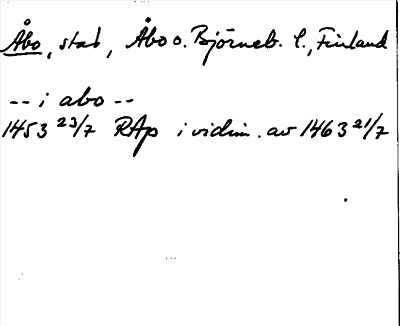 Åbo, stad, Åbo o. Björneb. l., Finland
-- i abo --
1453 23/7 RAp i vidim. av 1463 21/7